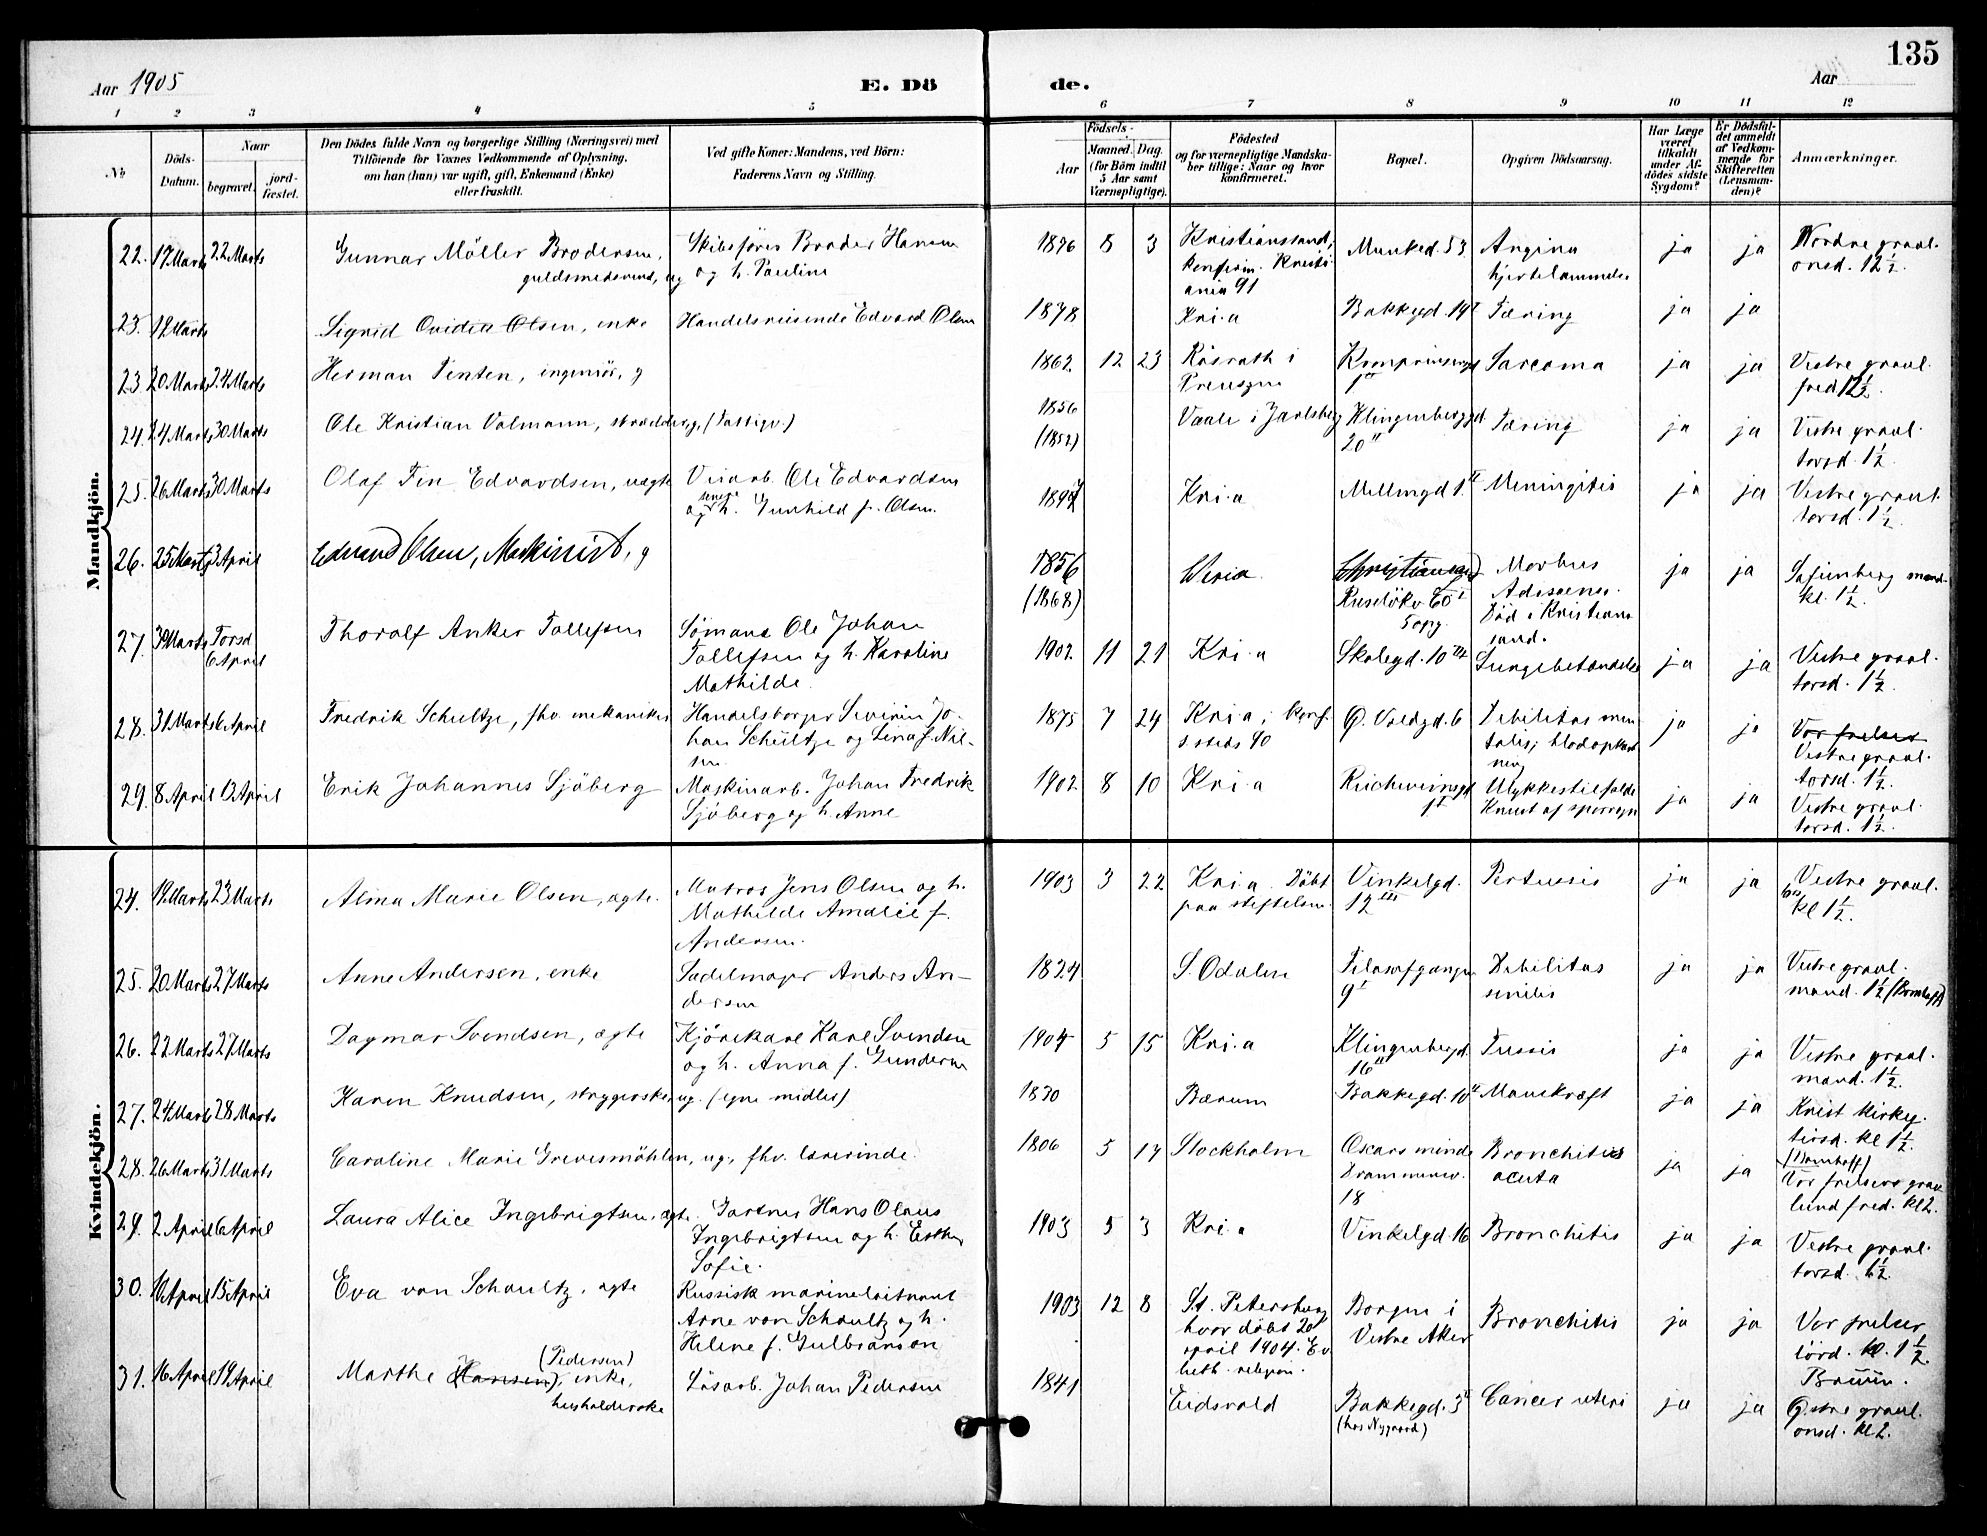 135
Aar 1905
E. Dö
de.
Aar
1 2 3 4 5 6 7 8 9 10 11 12
No
Döds-
Datum.
Naar
begravet.
jord-
fæstet.
Den Dödes fulde Navn og borgerlige Stilling (Næringsvei) med
Tilföiende for Voxnes Vedkommende af Oplysning,
om han (hun) var ugift, gift, Enkemand (Enke)
eller fraskilt.
Ved gifte Koner: Mandens, ved Börn:
Faderens Navn og Stilling.
Födsels-
Aar
Maaned. Dag.
(for Börn indtil
5 Aar samt
Værnepligtige).
Födested
og for værnepligtige Mandska-
ber tillige: Naar og hvor
konfirmeret.
Bopæl.
Opgiven Dödsaarsag.
Har Læge
været
tilkaldt
under Af-
dödes sidste
Sygdom?
Er Dödsfal-
det anmeldt
af Vedkom-
mende for
Skifteretten
(Lensman-
den)?
Anmærkninger.
Mandkjön.
22. 17 Marts 22 Marts
Gunnar Möller Brodersen,
guldsmedsvend, ug
Skibsfører Broder Hansen
og h. Pauline
1876 8 3
Kristianssand,
konfirm. Kristi-
ania 91
Munked. 53
Angina
hjertelammelse
ja ja
Nordre gravl.
onsd. 12 1/2.
23. 18 Marts
Sigrid Ovidia Olsen, enke
Handelsreisende Edvard Olsen
1878
Kri.a
Bakkegd. 19 I
Tæring
ja ja
23 20 Marts 24 Marts
Herman Tenten, ingeniör, g
1862 12 23
Rösrath i
Preuszen
Kronprinsensgd
1 II
Sarcoma
ja ja
Vestre gravl.
fred 12 1/2.
24. 24 Marts 30 Marts
Ole Kristian Valmann, skrædder, g, (Fattigv.)
1856
(1852)
Vaale i Jarlsberg
Klingenberggd
20 II
Tæring
ja ja
Vestre gravl.
torsd. 1 1/2.
25. 26 Marts 30 Marts
Olaf Fin Edvardsen, uægte
Visearb. Ole Edvardsen
senere
og h. Gunhild f. Olsen.
1897
Kri.a
Mellemgd 1. II
Meningitis
ja ja
Vestre gravl.
torsd. 1 1/2.
26. 25 Marts 3 April
Edvard Olsen, Maskinist, g
1856
(1868)
Christiansand
Ruselökv 60 I
5 opg.
Morbus
Adissoenes.
Död i Kristians-
sand.
ja ja
Sofienberg mand.
kl. 1 1/2.
27. 30 Marts Torsd
6 April
Thoralf Anker Tollefsen
Sömand Ole Johan
Tollefsen og h. Karoline
Mathilde.
1902 11 21
Kri.a
Skolegd. 10 III
Lungebetændelse
ja ja
Vestre gravl.
torsd. 1 1/2.
28. 31 Marts 6 April
Fredrik Schultze, fhv. mekaniker
Handelsborger Severin Jo-
han Schültze og Lena f. Nil-
sen
1875 7 24
Kri a, konf.
s. steds 90
Ø. Voldgd. 6
Debilitas men-
talis; blodopkast-
ning
ja ja
Vor frelser
Vestre gravl.
torsd. 1 1/2.
29. 8 April 13 April
Erik Johannes Sjöberg
Maskinarb. Johan Fredrik
Sjöberg og h. Anne
1902 8 10
Kri.a
Reichweinsgd
1 I
Ulykkestilfælde
Knust af sporvogn
ja ja
Vestre gravl.
torsd. 1 1/2.
Kvindekjön.
24. 19 Marts 23 Marts
Alma Marie Olsen, ægte.
Matros Jens Olsen og h.
Mathilde Amalie f.
Andersen.
1903 3 22
Kri a. Döbt
paa stiftelsen.
Vinkelgd.
12 III
Pertussis
ja ja
Vestre gravl.
kl 1 1/2.
25. 20 Marts 27 Marts
Anne Andersen, enke
Sadelmager Anders An-
dersen
1824
S. Odalen
Filosofgangen
9 I
Debilitas
senilis
ja ja
Vestre gravl.
mand. 1 1/2 (Bomhoff)
26. 22 Marts 27 Marts
Dagmar Svendsen, ægte
Kjörekarl Karl Svendsen
og h. Anna f. Gundersen
1904 5 15
Kri.a
Klingenbergd.
16 II
Tussis
ja ja
Vestre gravl.
mand. 1 1/2.
27. 24 Marts 28 Marts
Karen Knudsen, strygerske, ug. (egne midler)
1830
Bærum
Bakkegd. 10 II
Mavekræft
ja ja
Krist kirkeg.
tirsd. kl 1 1/2.
28. 26 Marts 31 Marts
Caroline Marie Grevesmöhlen, ug., fhv. lærerinde.
1806 5 17
Stockholm
Oscars minde
Drammensv.
18
Bronchitis
acuta
ja ja
(Bomhoff)
Vor frelsers grav-
lund fred. kl 2.
29. 2 April 6 April
Laura Alice Ingebrigtsen, ægte.
Gartner Hans Olaus
Ingebrigtsen og h. Esther
Sofie.
1903 5 3
Kri.a
Vinkelgd. 16
Bronchitis
ja ja
Vestre gravl.
torsd. 1 1/2.
30. 10 April 15 April
Eva von Schoultz, ægte
Russisk marineløitnant
Arne von Schoultz og h.
Helene f. Gulbranson
1903 12 8
St. Petersburg
hvor döbt 20
april 1904. Ev.
luth. religion.
Borgen i
Vestre Aker
Bronchitis
ja ja
Vor frelser
lörd. kl. 1 1/2.
Bruun.
31. 16 April 19 April
(Pedersen)
Marthe (Hansen), enke,
husholderske
Lösarb. Johan Pedersen
1841
Eidsvold
Bakkegd. 3 II
(hos Nygaard)
Cancer uteri
ja ja
Østre gravl.
onsd. kl 2.